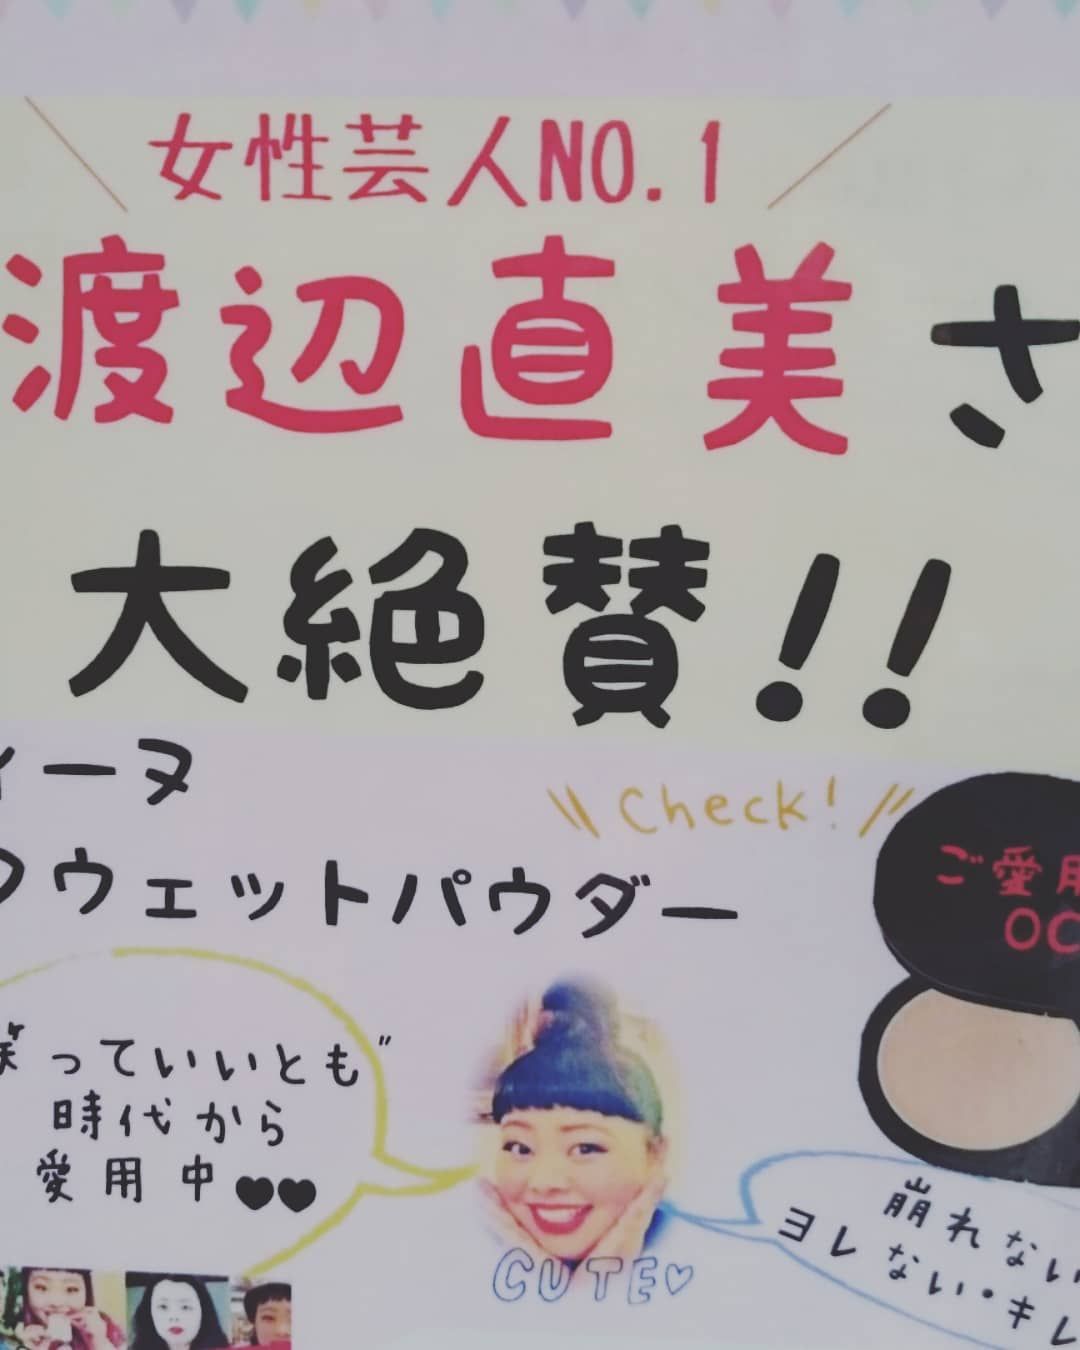 女性芸人NO.1
渡辺直美さ
大絶賛!!
ィーヌ
Check!
クウェットパウダー
ご愛用
OC
笑っていいとも"
時代から
愛用中♥♥
崩れない
ヨレない・キレ
CUTE♡